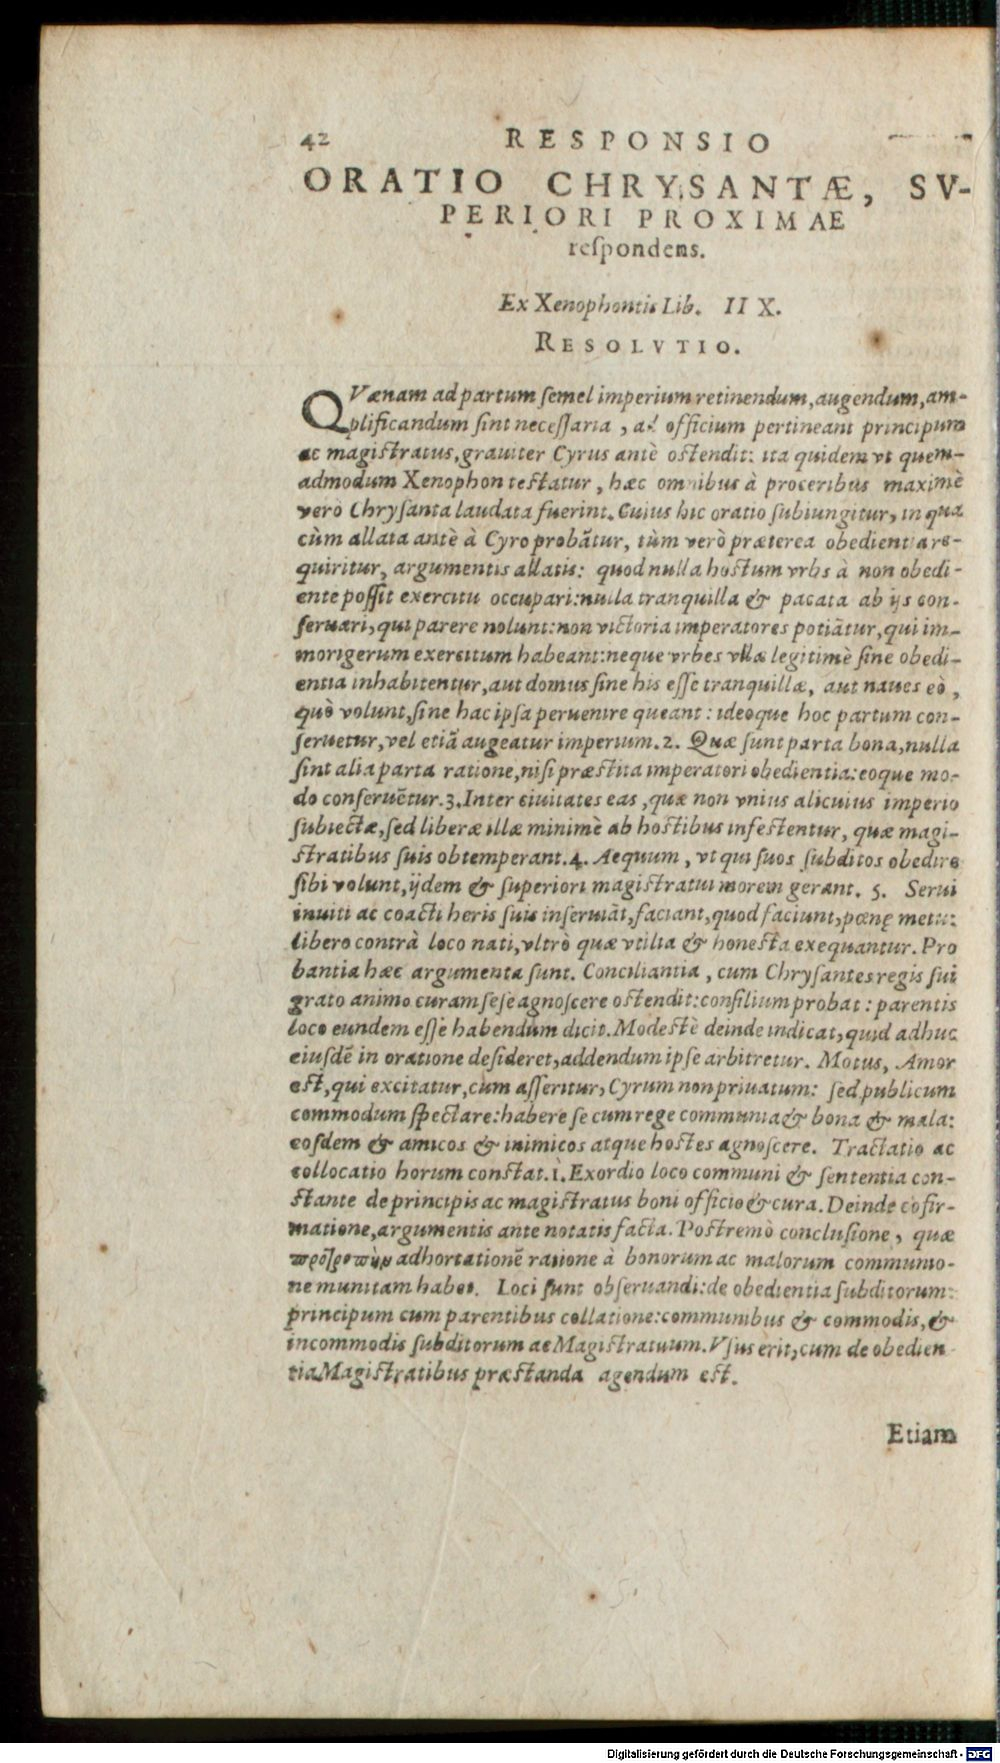 42 RESPONSIO
ORATIO CHRYSANTÆ, SV-
PERIORI PROXIMAE
reſpondens.
Ex Xenophontis Lib. IIX.
RESOLVTIO.
QVænam ad partum ſemel imperium retinendum, augendum, am-
plificandum ſint neceſſaria, ad officium pertineant principum
ac magiſtratus, grauiter Cyrus antè oſtendit: ita quidem vt quem-
admodum Xenophon teſtatur, hæc omnibus à proceribus maximè
verò Chryſanta laudata fuerint. Cuius hic oratio ſubiungitur, in qua
cùm allata antè à Cyro probãtur, tùm verò præterea obedientia re-
quiritur, argumentis allatis: quod nulla hoſtum vrbs à non obedi-
ente poſſit exercitu occupari: nulla tranquilla & pacata ab ijs con-
ſeruari, qui parere nolunt: non victoria imperatores potiãtur, qui im-
morigerum exercitum habeant: neque vrbes vllæ legitimè ſine obedi-
entia inhabitentur, aut domus ſine his eſſe tranquillæ, aut naues eò,
quò volunt, ſine hac ipſa peruenire queant: ideoque hoc partum con-
ſeruetur, vel etiã augeatur imperium. 2. Quæ ſunt parta bona, nulla
ſint alia parta ratione, niſi præſtita imperatori obedientia: eoque mo-
do conſeruẽtur. 3. Inter ciuitates eas, quæ non vnius alicuius imperio
ſubiectæ, ſed liberæ illæ minimè ab hoſtibus infeſtentur, quæ magi-
ſtratibus ſuis obtemperant. 4. Aequum, vt qui ſuos ſubditos obedire
ſibi volunt, ijdem & ſuperiori magiſtratui morem gerant. 5. Serui
inuiti ac coacti heris ſuis inſeruiãt, faciant, quod faciunt, pœnę metu:
libero contrà loco nati, vltrò quæ vtilia & honeſta exequantur. Pro
bantia hæc argumenta ſunt. Conciliantia, cum Chryſantes regis ſui
grato animo curam ſeſe agnoſcere oſtendit: conſilium probat: parentis
loco eundem eſſe habendum dicit. Modeſtè deinde indicat, quid adhuc
eiuſdẽ in oratione deſideret, addendum ipſe arbitretur. Motus, Amor
eſt, qui excitatur, cum aſſeritur, Cyrum non priuatum: ſed publicum
commodum ſpectare: habere ſe cum rege communia & bona & mala:
eoſdem & amicos & inimicos atque hoſtes agnoſcere. Tractatio ac
collocatio horum conſtat. 1. Exordio loco communi & ſententia con-
ſtante de principis ac magiſtratus boni officio & cura. Deinde cõfir-
matione, argumentis ante notatis facta. Poſtremò concluſione, quæ
προτροπὴν adhortationẽ ratione à bonorum ac malorum communio-
ne munitam habet. Loci ſunt obſeruandi: de obedientia ſubditorum:
principum cum parentibus collatione: communibus & commodis, &
incommodis ſubditorum ac Magiſtratuum. Vſus erit, cum de obedien
tia Magiſtratibus præſtanda agendum eſt.
Etiam
Digitalisierung gefördert durch die Deutsche Forschungsgemeinschaft - DFG